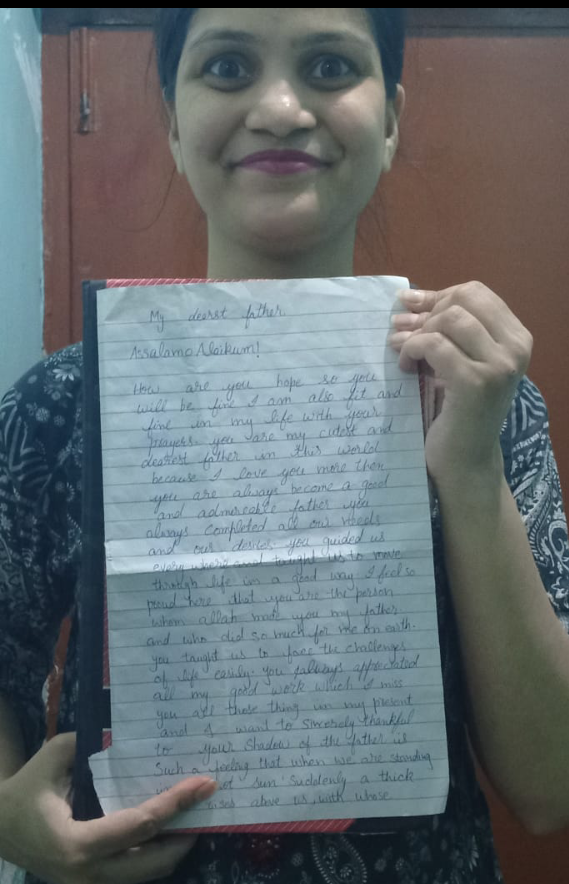 My deerst father
Assalamo Alaikum!
How are you hope so you
will be fine I am also fit and
fine in my life with your
prayers you are my cutest and
dearest father in this world
because I love you more then
you are always become a good
and admireable father you
always completed all our needs
and our desires you guided us
every where and taught us to move
through life in a good way I feel so
proud here that you are the person
whom allah made you my father
and who did so much for me on earth.
you taught us to face the challenges
of life easily. you always appreciated
all my good work which I miss
you all those thing in my present
and I want to sincerely thankful
to your shadow of the father is
Such a feeling that when we are standing
sun suddenly a thick
above us with whose